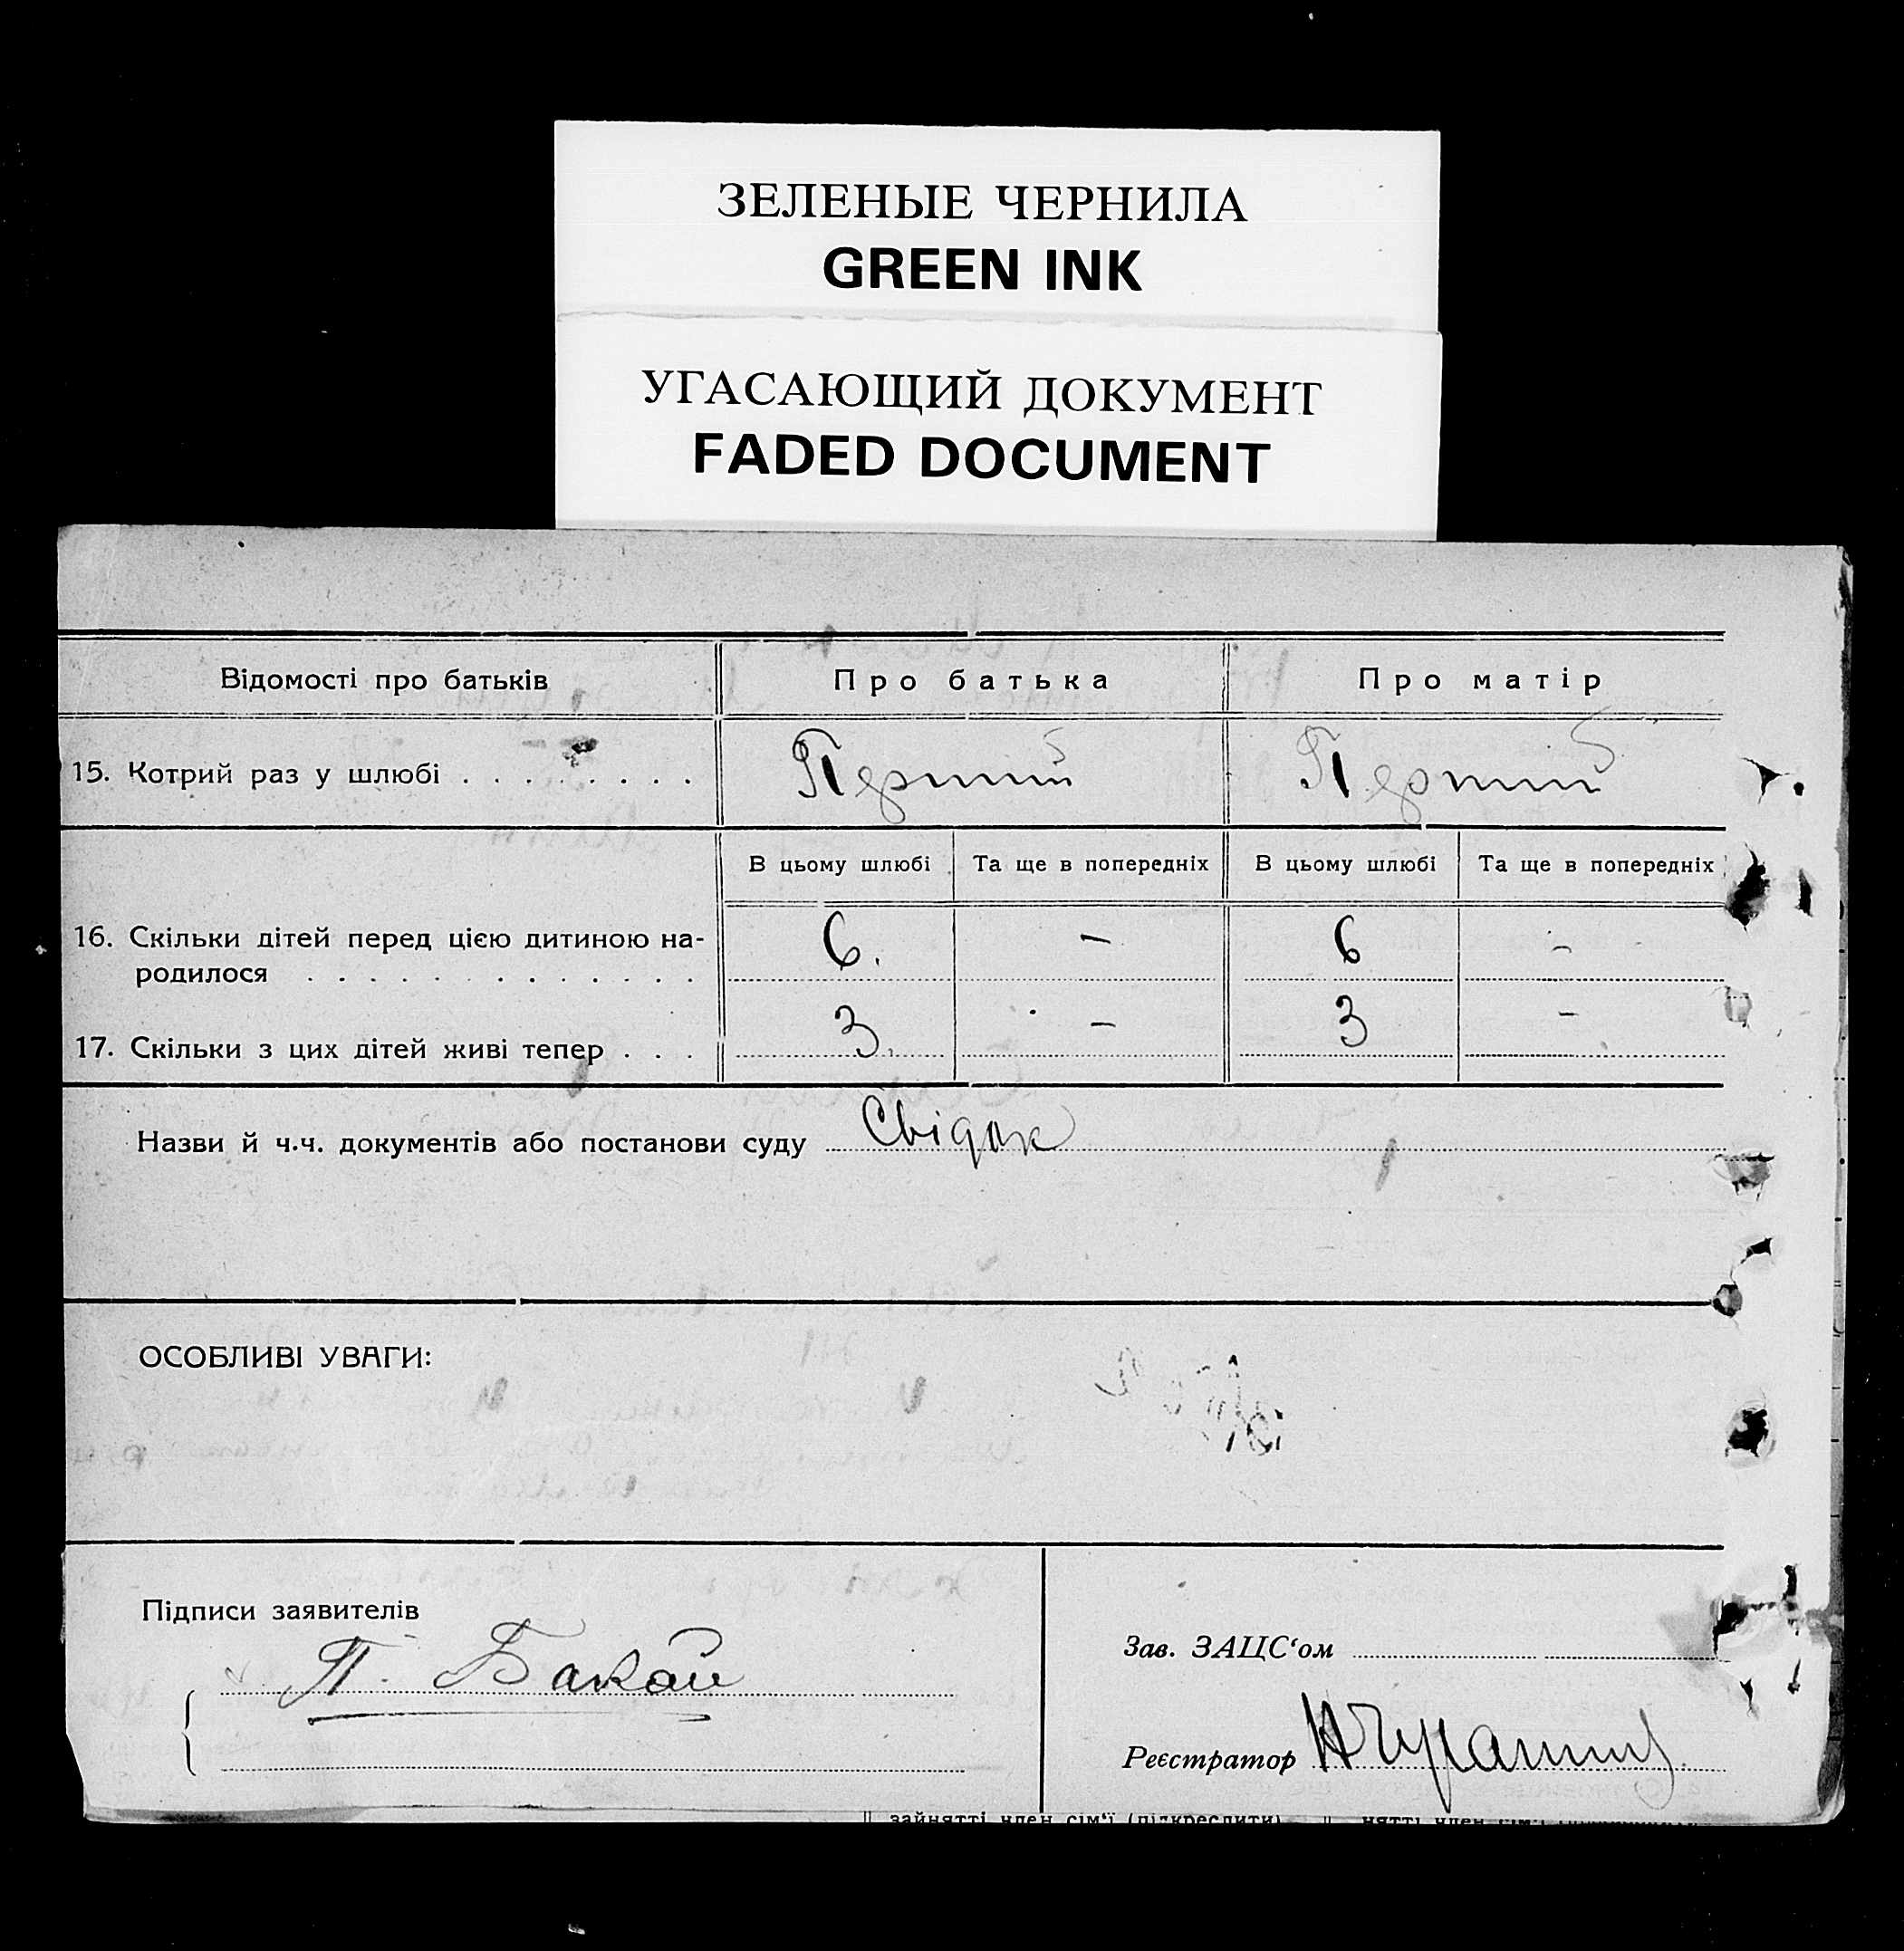 ЗЕЛЕНЫЕ ЧЕРНИЛА
GREEN INK
УГАСАЮЩИЙ ДОКУМЕНТ
FADED DOCUMENT
Відомості про батьків Про батька Про матір
15. Котрий раз у шлюбі . . . . . . . . Перший Перший
В цьому шлюбі Та ще в попередніх В цьому шлюбі Та ще в попередніх
16. Скільки дітей перед цією дитиною на-
родилося . . . . . . . . . . . . . 6. – 6 –
17. Скільки з цих дітей живі тепер . . . 3. – 3 –
Назви й ч.ч. документів або постанови суду Свідок
ОСОБЛИВІ УВАГИ:
Підписи заявителів
П. Бакай
Зав. ЗАЦС‘ом
Реєстратор
зайнятті член сім‘ї (підкреслити) нятті член сім‘ї